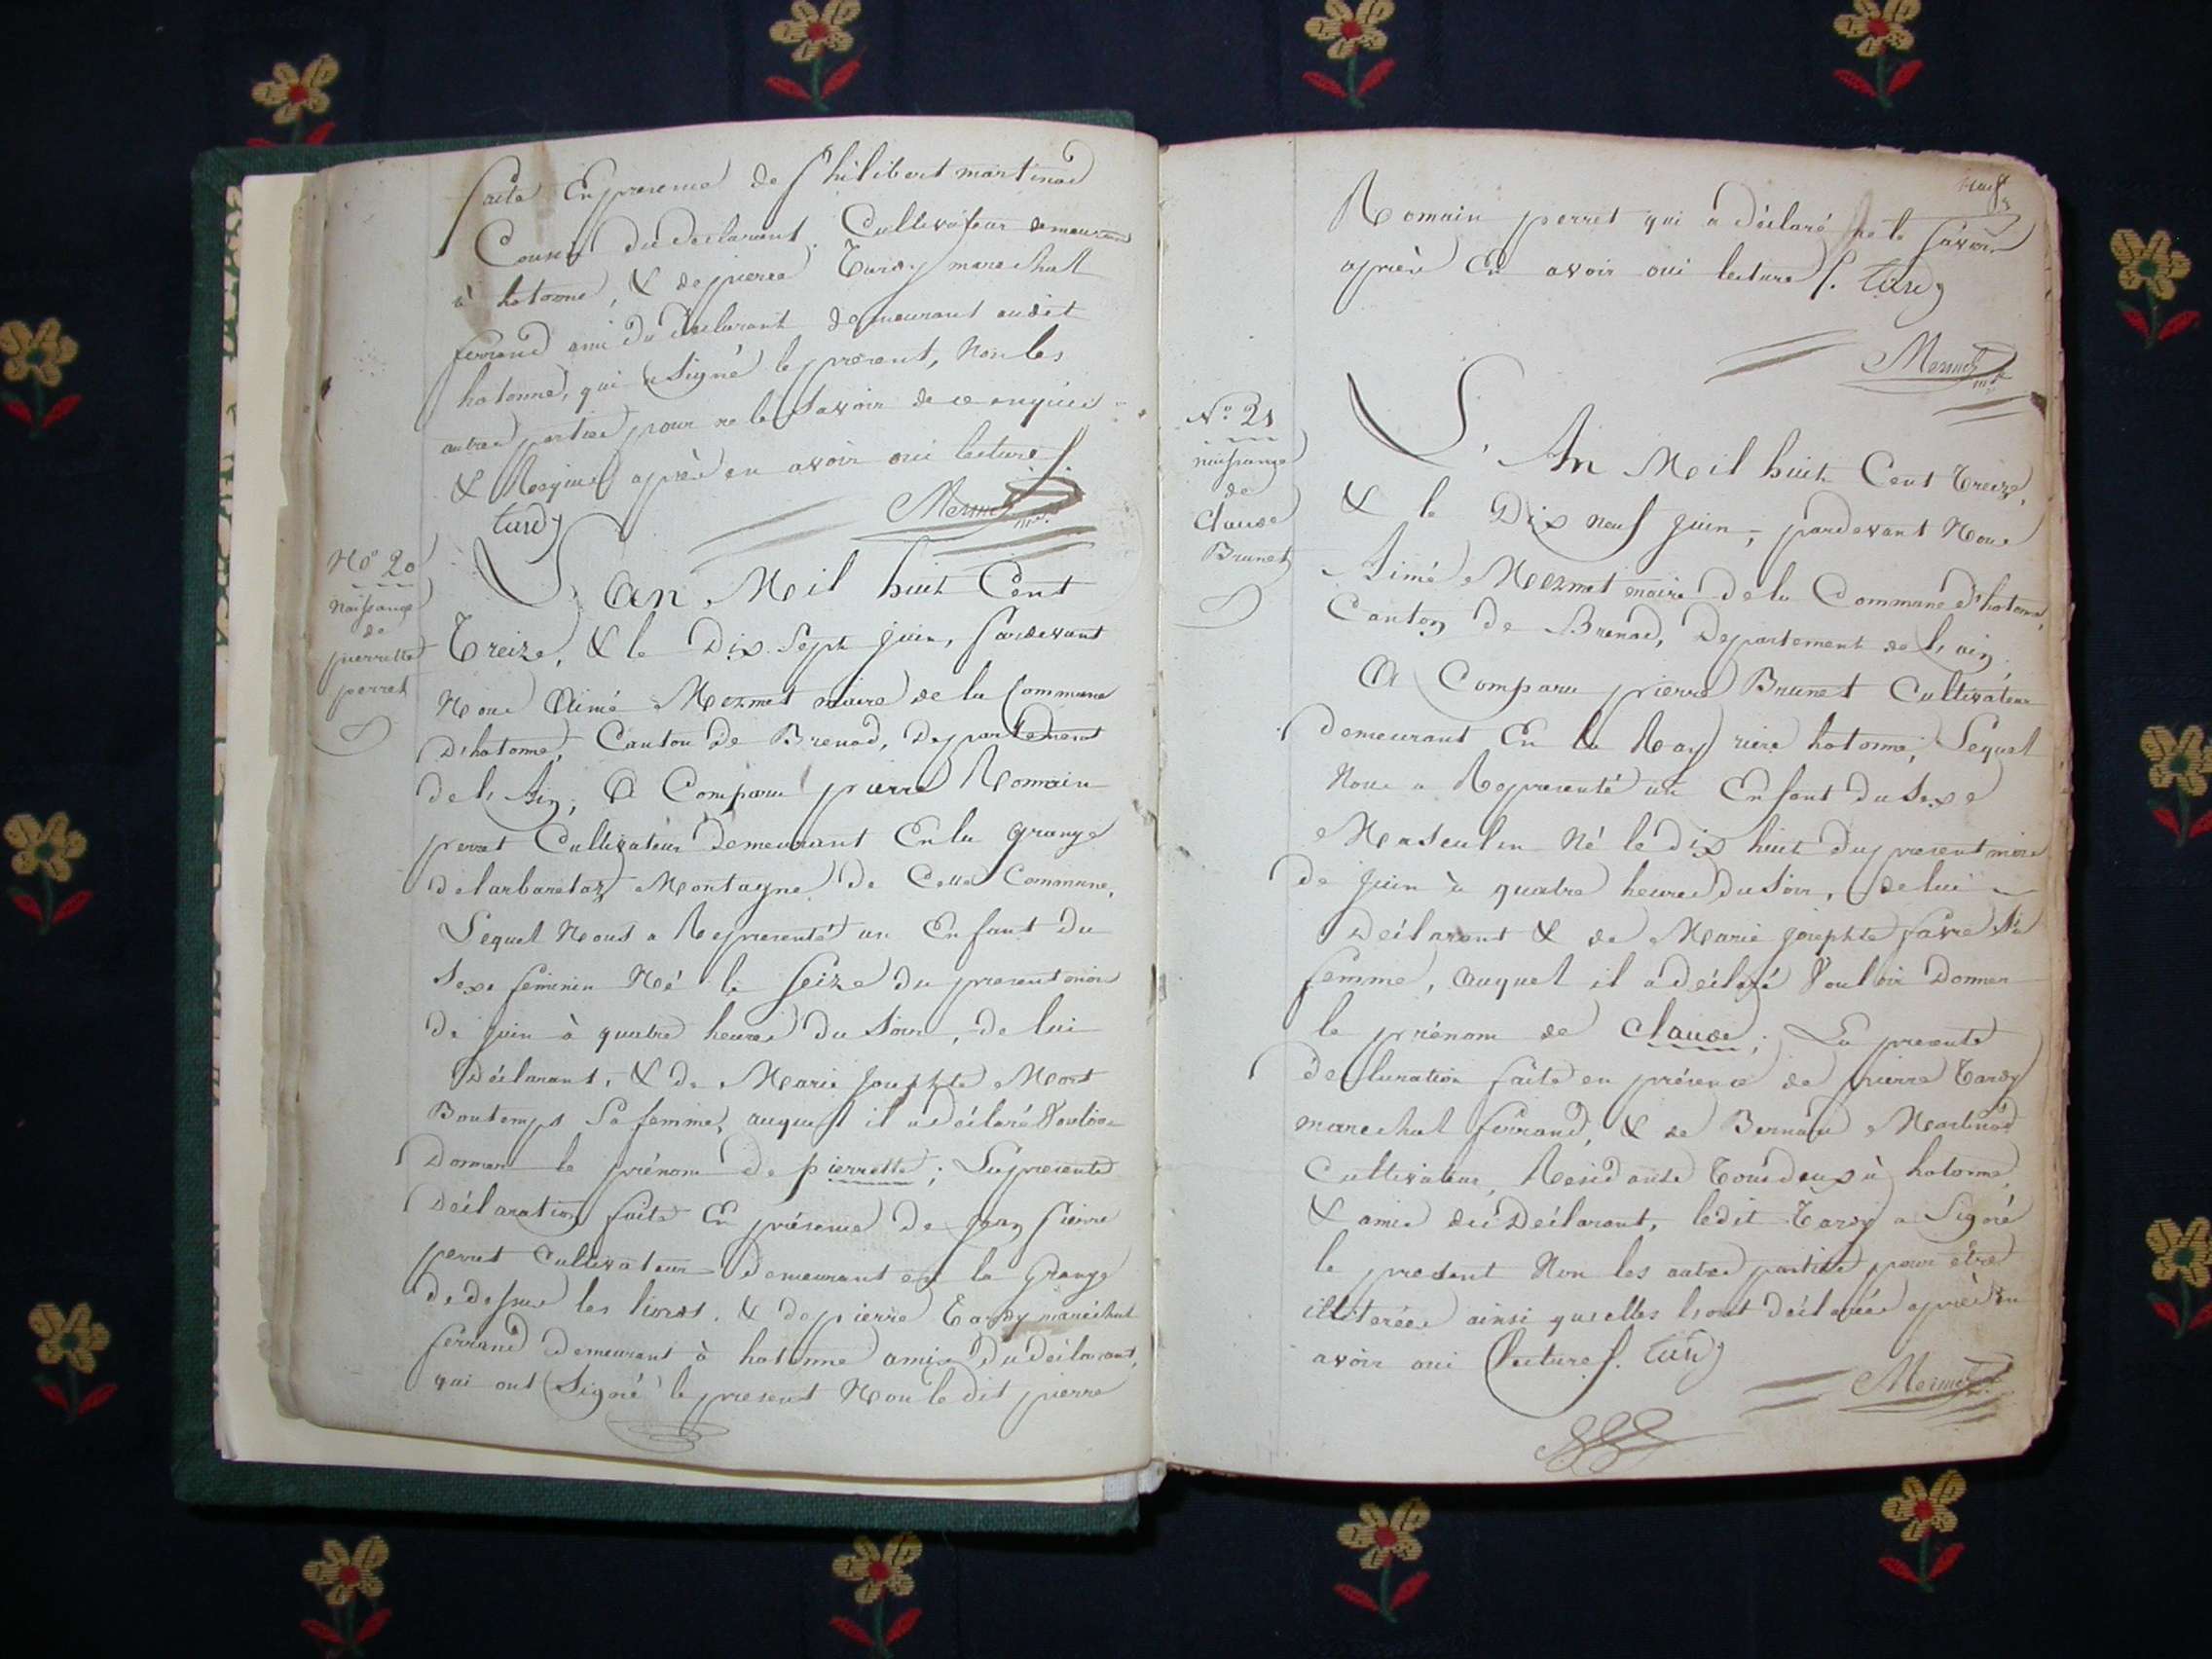 faite En presence de philibert martinod
Cousin du declarant, Cultivateur demeurant
à hotonne, & de pierre Tardy marechal
ferrand ami du declarant demeurant audit
hotonne, qui a Signé le present, Non les
autres parties pour ne le Savoir de ce enquis
& Requis après en avoir oui lecture
tardy Mermet
No 20
Naissance
de
pierrette
perret
L'an Mil huit Cent
Treize, & le Dix Sept juin, pardevant
Nous Aimé Mermet maire de la Commune
D'hotonne, Canton de Brenod, Departement
de l'Ain, A Comparu pierre Romain
perret Cultivateur Demeurant En la grange
de Montagne de Cette Commune,
Lequel Nous a Representé un Enfant du
Sexe feminin Né le Seize du present mois
de juin à quatre heures du Soir, de lui
Déclarant, & de Marie Josephte Mort
Bontemps Sa femme, auquel il a déclaré Vouloir
Donner le prénom de pierrette; La presente
Déclaration faite En présence de jean pierre
perret Cultivateur demeurant en la grange
de dessus les & de pierre Tardy maréchal
ferrand demeurant à hotonne amis du déclarant,
qui ont Signé le present Non le dit pierre
Neuf
Romain perret qui a déclaré ne le Savoir
après En avoir oui lecture. tardy
Mermet
No 21
naissance
de
Claude
Brunet
L'An Mil huit Cent Treize,
& le Dix neuf juin, pardevant Nous
Aimé Mermet maire de la Commune d'hotonne,
Canton de Brenod, Departement de l'ain,
A Comparu pierre Brunet Cultivateur
demeurant En la riere hotonne, Lequel
Nous a Representé un Enfant du Sexe
Masculin Né le dix huit du present mois
de juin à quatre heures du Soir, de lui
Déclarant & de Marie josephte favre Sa
femme, auquel il a déclaré Vouloir Donner
le prénom de Claude; La presente
déclaration faite en présence de pierre Tardy
marechal ferrand, & de Bernard Martinod
Cultivateur, Residants Tous deux à hotonne,
& amis du Déclarant, ledit Tardy a Signé
le present Non les autres parties pour être
illiterées ainsi qu'elles l'ont déclarée après en
avoir oui lecture. tardy
Mermet